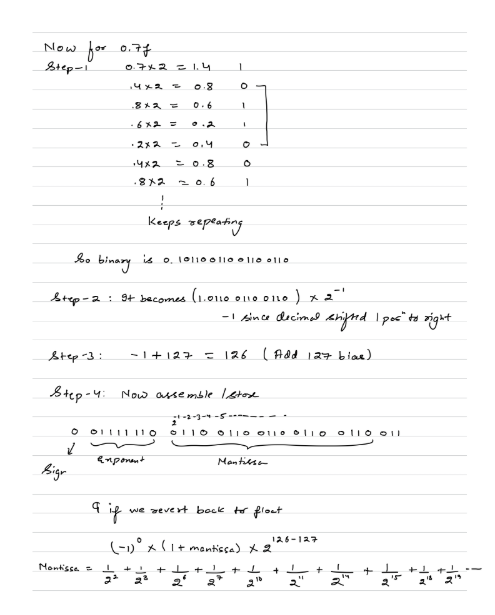 Now for 0.7f
Step-1 0.7×2 = 1.4 1
.4×2 = 0.8 0
.8×2 = 0.6 1
.6×2 = 0.2 1
.2×2 = 0.4 0
.4×2 = 0.8 0
.8×2 = 0.6 1
Keeps repeating
So binary is 0.10110 0110 0110 0110
Step-2 : It becomes (1.0110 0110 0110) × 2^-1
-1 since decimal shifted 1 posⁿ to right
Step-3: -1+127 = 126 (Add 127 bias)
Step-4: Now assemble / store
2 -1-2-3-4-5-------- - -
0 01111110 0110 0110 0110 0110 0110 011
Sign Exponent Mantissa
if we revert back to float
(-1)^0 × (1 + mantissa) × 2^126-127
Mantissa = 1/2^2 + 1/2^3 + 1/2^6 + 1/2^7 + 1/2^10 + 1/2^11 + 1/2^14 + 1/2^15 + 1/2^18 + 1/2^19 ---